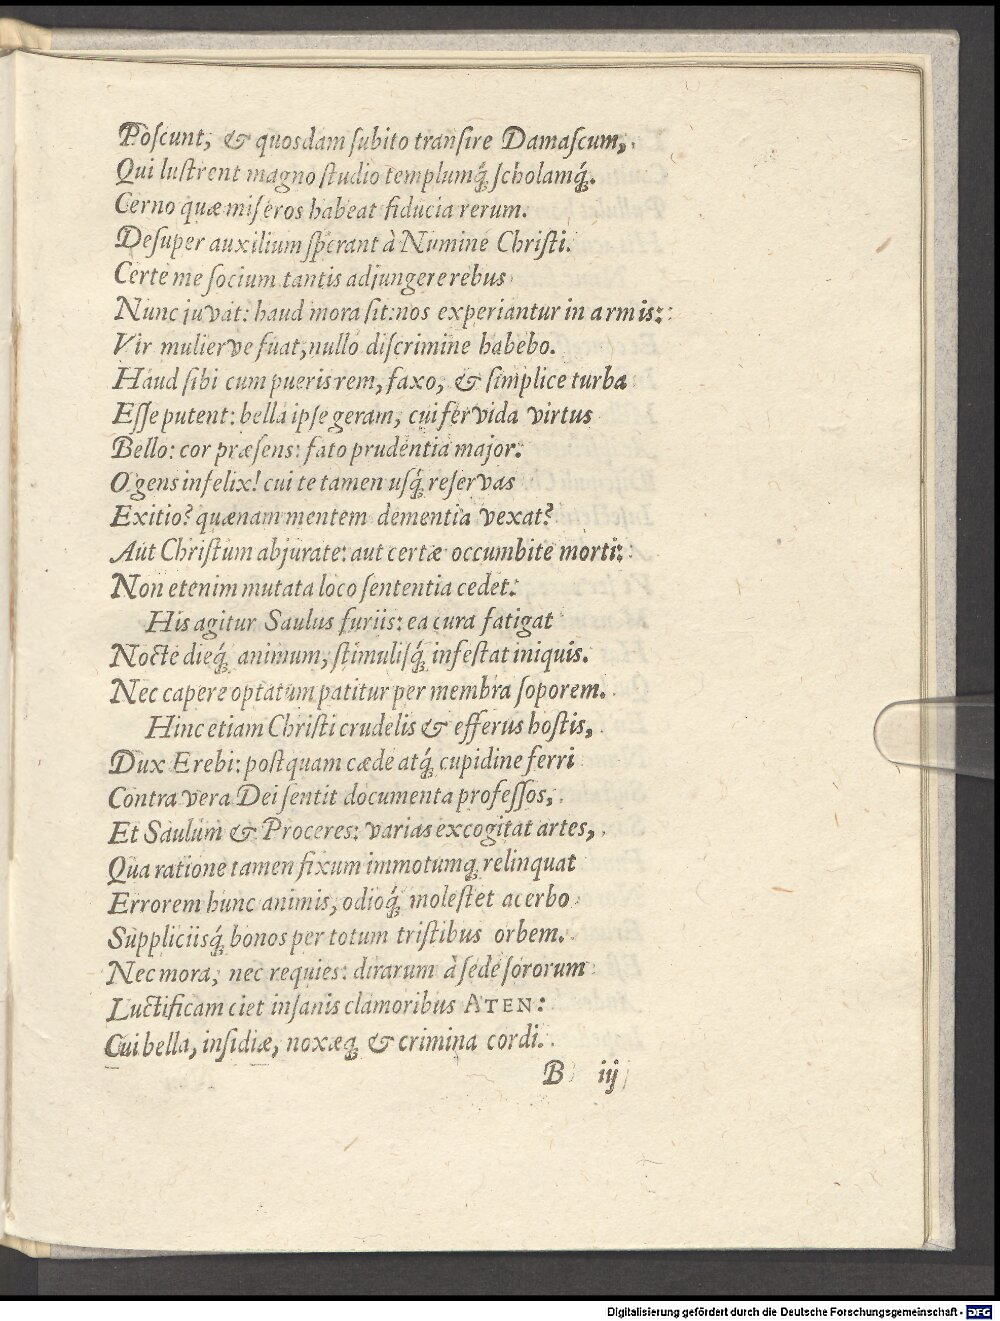 Poſcunt, & quosdam ſubito tranſire Damaſcum,
Qui luſtrent magno ſtudio templumq́; ſcholamq́;.
Cerno quæ miſeros habeat fiducia rerum.
Deſuper auxilium ſperant à Numine Chriſti.
Certè me ſocium tantis adjungere rebus
Nunc juvat: haud mora ſit: nos experiantur in armis:
Vir mulierve fuat, nullo diſcrimine habebo.
Haud ſibi cum pueris rem, faxo, & ſimplice turba
Eſſe putent: bella ipſe geram, cui fervida virtus
Bello: cor præſens: fato prudentia major.
O gens infelix! cui te tamen uſq́; reſervas
Exitio? quænam mentem dementia vexat?
Aut Chriſtum abjurate: aut certæ occumbite morti:
Non etenim mutata loco ſententia cedet.
His agitur Saulus furiis: ea cura fatigat
Nocte dieq́; animum, ſtimuliſq́; infeſtat iniquis.
Nec capere optatum patitur per membra ſoporem.
Hinc etiam Chriſti crudelis & efferus hoſtis,
Dux Erebi: poſtquam cæde atq́; cupidine ferri
Contra vera Dei ſentit documenta profeſſos,
Et Saulum & Proceres: varias excogitat artes,
Qua ratione tamen fixum immotumq; relinquat
Errorem hunc animis, odioq́; moleſtet acerbo
Suppliciisq́; bonos per totum triſtibus orbem.
Nec mora, nec requies: dirarum à ſede ſororum
Luctificam ciet inſanis clamoribus ATEN:
Cui bella, inſidiæ, noxæq; & crimina cordi.
B iij
Digitalisierung gefördert durch die Deutsche Forschungsgemeinschaft - DFG